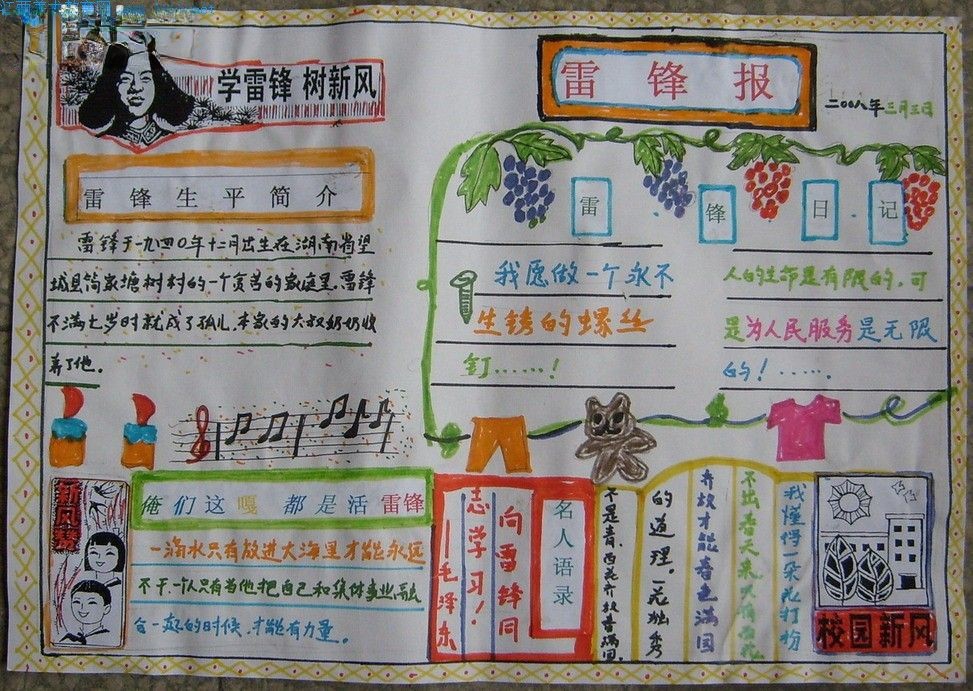 学雷锋 树新风
雷锋报
二〇〇八年三月三日
雷锋生平简介
雷锋于一九四〇年十二月出生在湖南省望
城县简家塘树村的一个贫苦的家庭里，雷锋
不满七岁时就成了孤儿，本家的六叔奶奶收
养了他。
雷锋日记
我愿做一个永不
生锈的螺丝
钉……！
人的生命是有限的，可
是为人民服务是无限
的！……．
新风赞
俺们这嘎都是活雷锋
一滴水只有放进大海里才能永远
不干一个人只有当他把自己和集体事业融
合一起的时候，才能有力量。
名人语录
向雷锋同
志学习！
——毛泽东
我懂得一朵花打扮
不出春天来，只有百花
齐放才能春色满园
的道理。一花独秀
不是春，百花齐放春满园。
校园新风